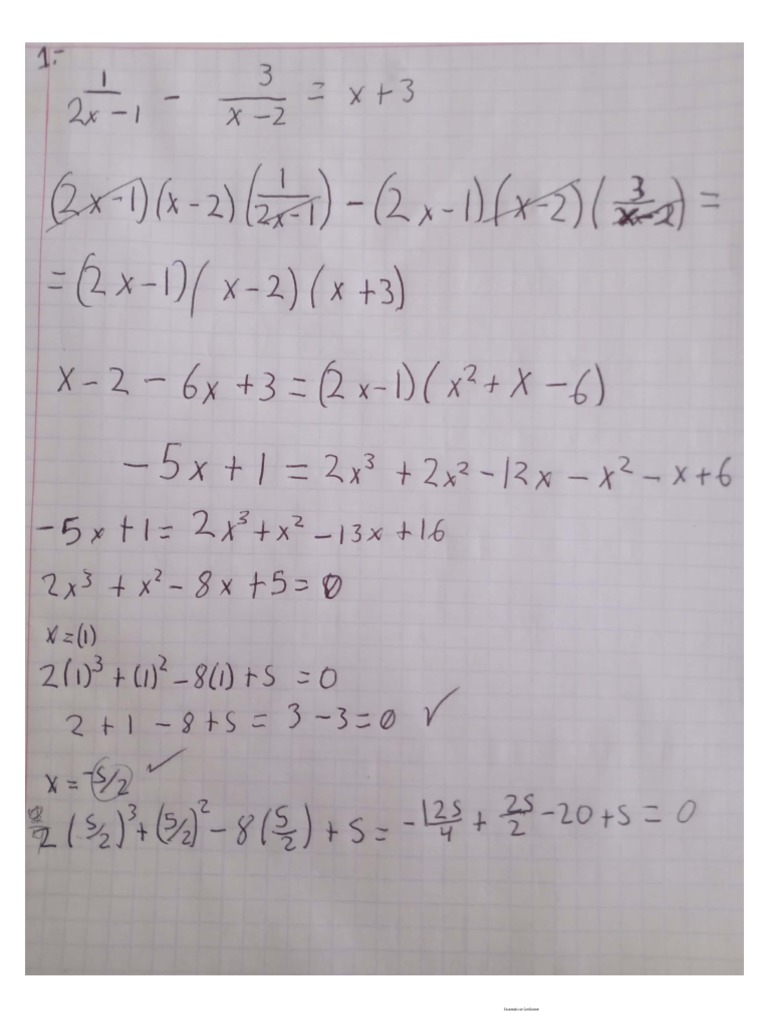 1.-
1/(2x-1) - 3/(x-2) = x+3
(2x-1)(x-2)(1/(2x-1)) - (2x-1)(x-2)(3/(x-2)) =
= (2x-1)(x-2)(x+3)
x-2-6x+3=(2x-1)(x²+x-6)
-5x+1=2x³+2x²-12x-x²-x+6
-5x+1=2x³+x²-13x+16
2x³+x²-8x+5=0
x=(1)
2(1)³+(1)²-8(1)+5 =0
2+1-8+5=3-3=0 ✓
x=-5/2 ✓
2(5/2)³+(5/2)²-8(5/2)+5=-125/4+25/2-20+5=0